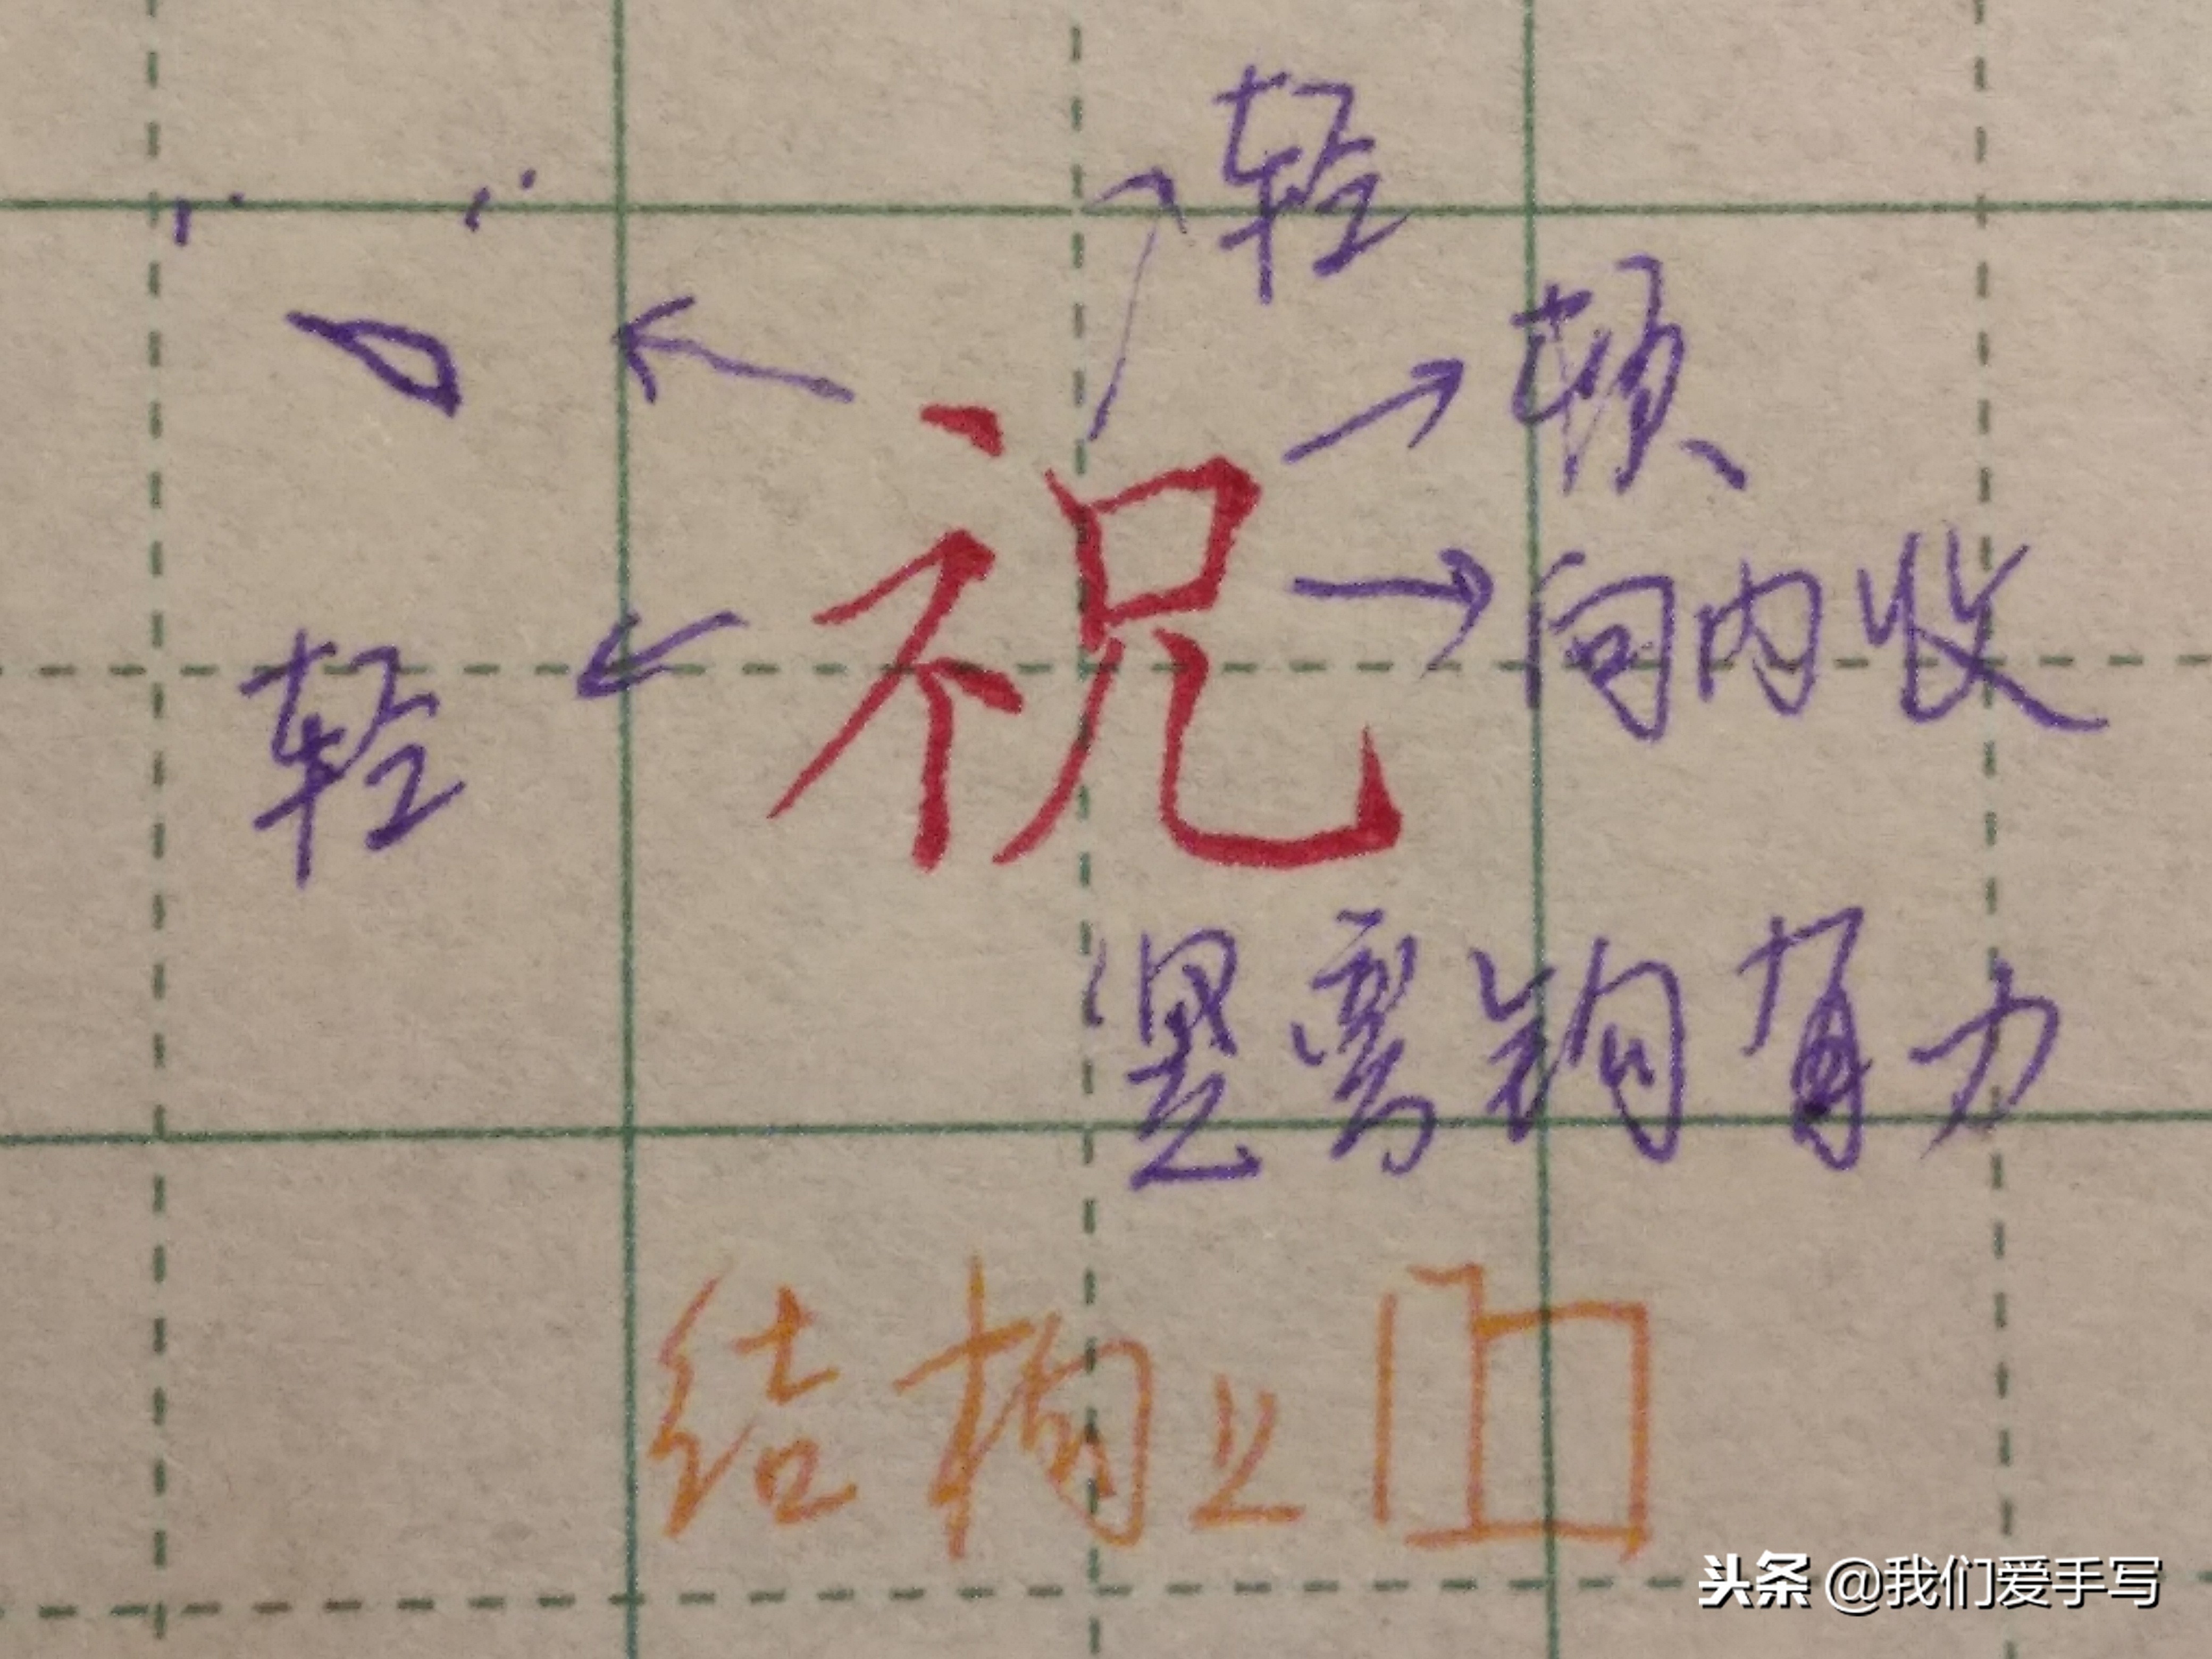 轻
顿
祝
向内收
轻
竖弯钩有力
结构上
头条 @我们爱手写